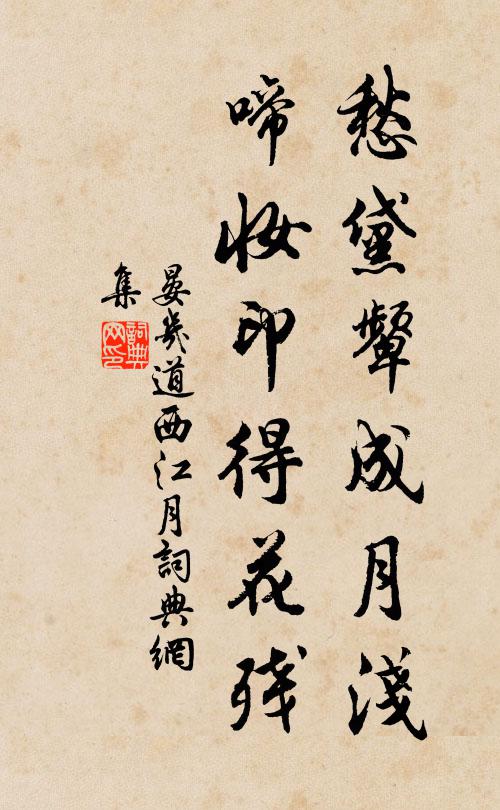 愁黛顰成月淺
啼妝印得花殘
晏幾道西江月詞典網
集
詞典網印